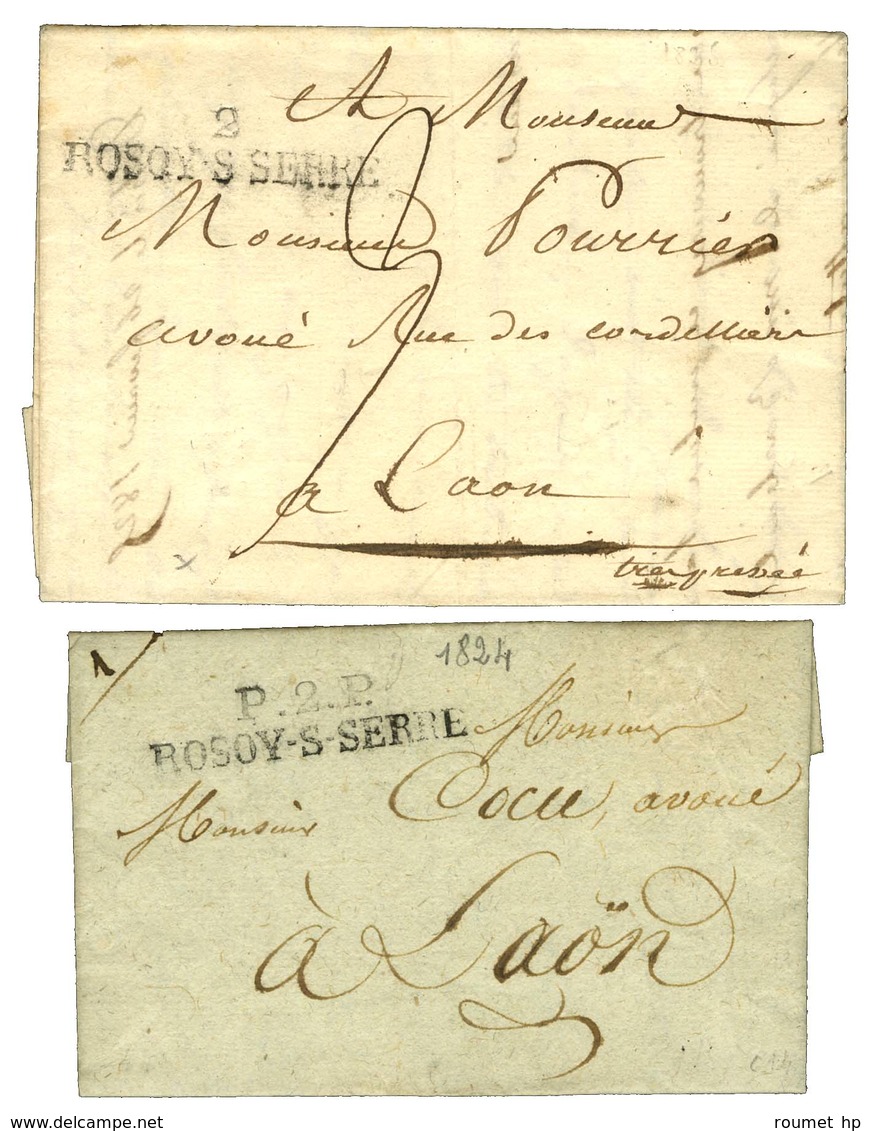 2
ROSOY-S-SERRE
A Monsieur
Monsieur Pourrier
avoué Rue des cordelliers
à Laon
très pressée
1
1824
P.2.P.
ROSOY-S-SERRE
Monsieur
Monsieur Cocu, avoué
à Laön
roumet hp